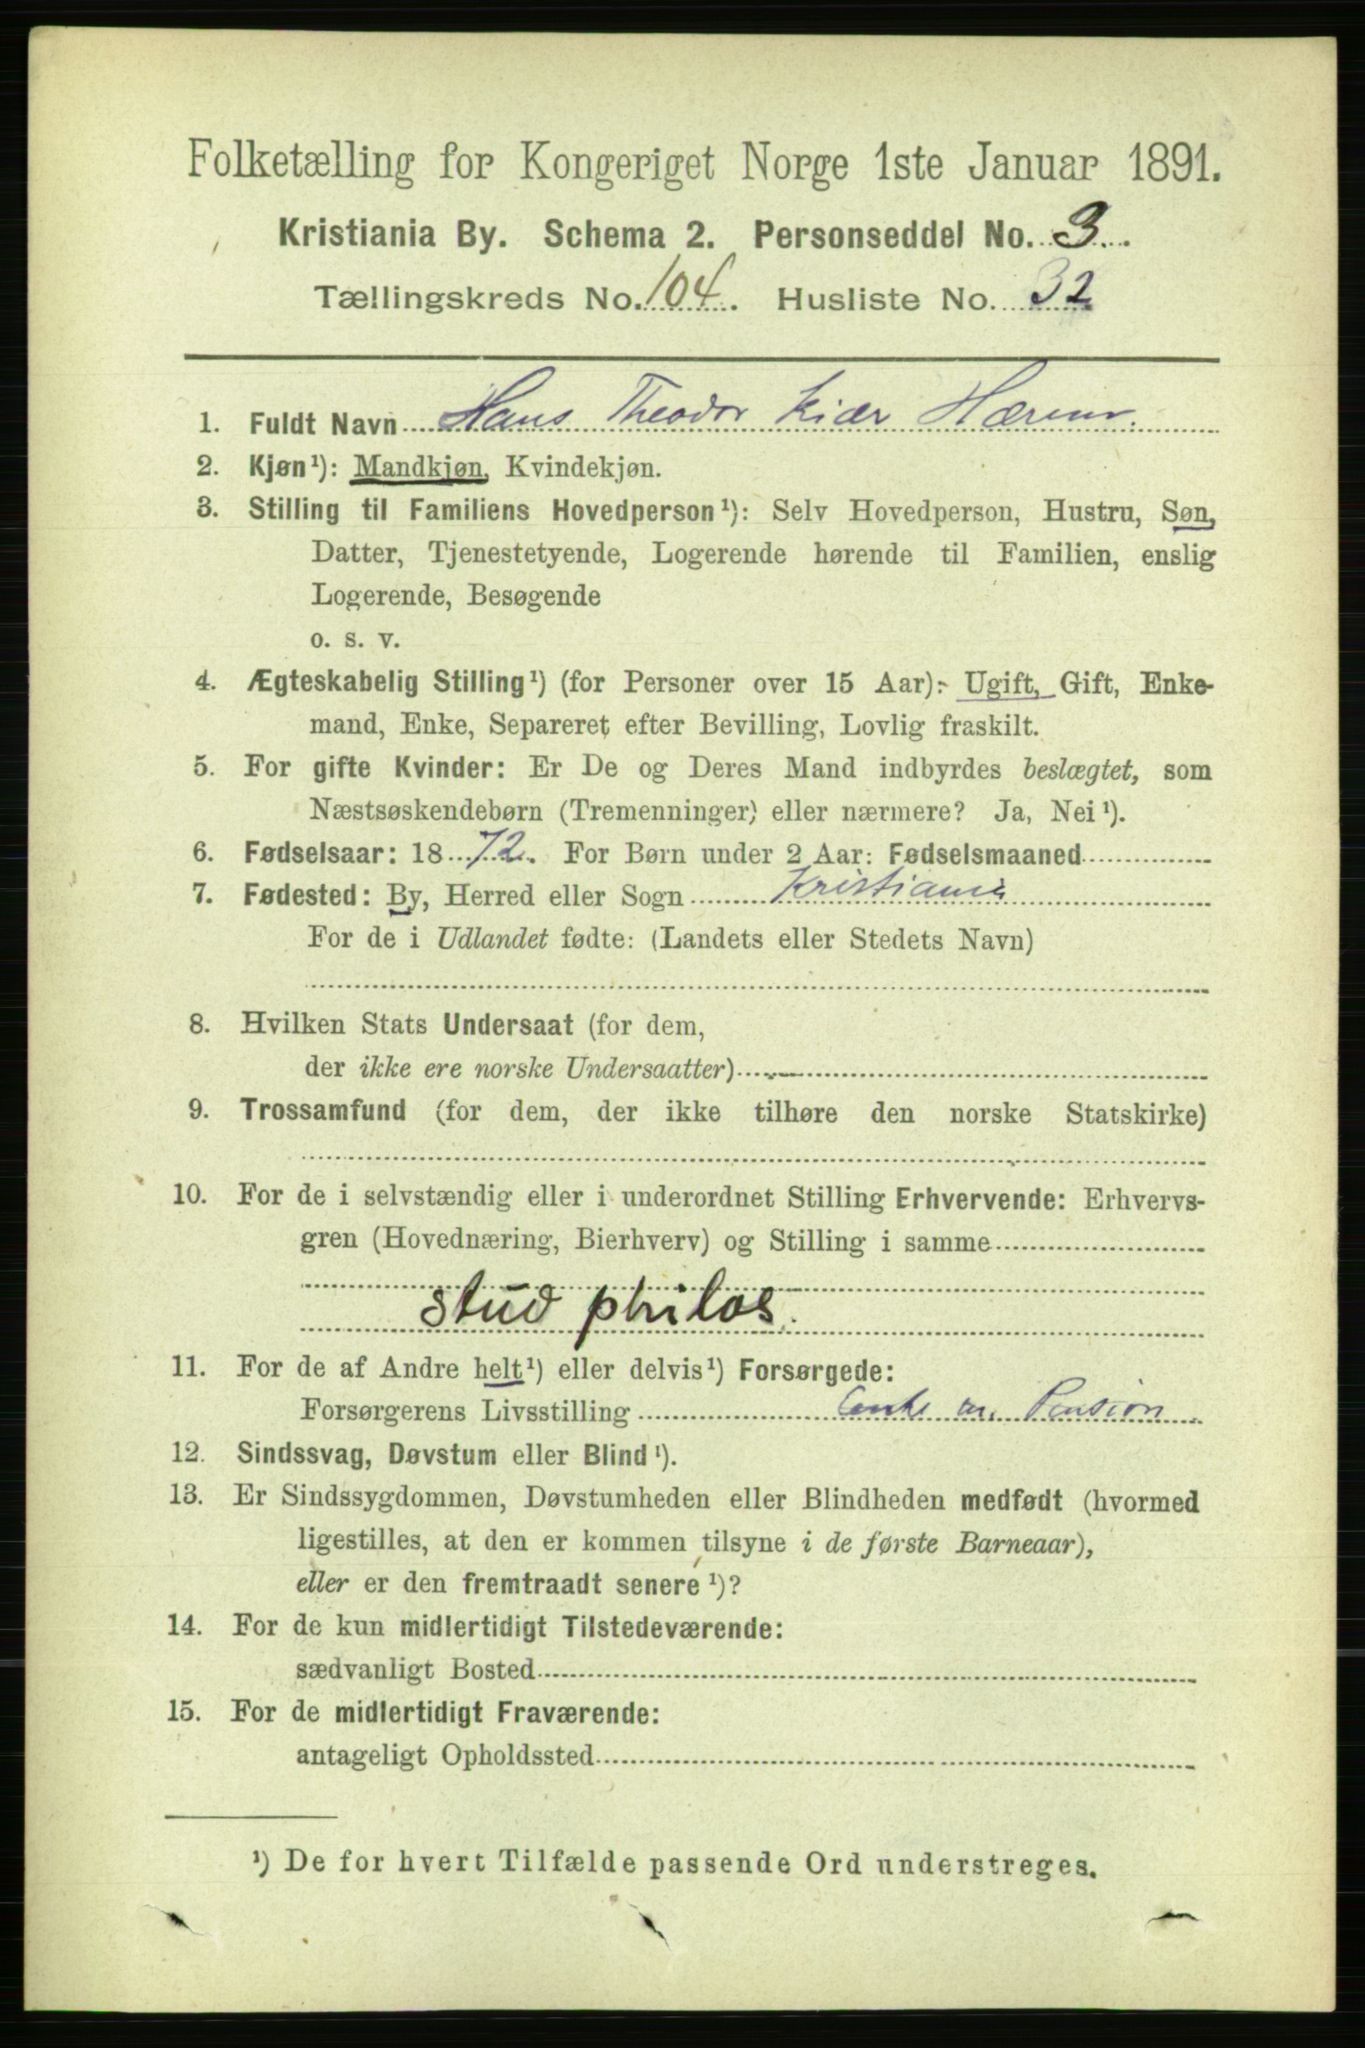 Folketælling for Kongeriget Norge 1ste Januar 1891.
Kristiania By. Schema 2. Personseddel No. 3.
Tællingskreds No. 104. Husliste No. 32
1. Fuldt Navn Hans Theodor Kiær
2. Kjøn¹): Mandkjøn, Kvindekjøn.
3. Stilling til Familiens Hovedperson¹): Selv Hovedperson, Hustru, Søn,
Datter, Tjenestetyende, Logerende hørende til Familien, enslig
Logerende, Besøgende
o. s. v.
4. Ægteskabelig Stilling¹) (for Personer over 15 Aar): Ugift, Gift, Enke-
mand, Enke, Separeret efter Bevilling, Lovlig fraskilt.
5. For gifte Kvinder: Er De og Deres Mand indbyrdes beslægtet, som
Næstsøskendebørn (Tremenninger) eller nærmere? Ja, Nei¹).
6. Fødselsaar: 1872. For Børn under 2 Aar: Fødselsmaaned
7. Fødested: By, Herred eller Sogn Kristiania
For de i Udlandet fødte: (Landets eller Stedets Navn)
8. Hvilken Stats Undersaat (for dem,
der ikke ere norske Undersaatter)
9. Trossamfund (for dem, der ikke tilhøre den norske Statskirke)
10. For de i selvstændig eller i underordnet Stilling Erhvervende: Erhvervs-
gren (Hovednæring, Bierhverv) og Stilling i samme
stud philos.
11. For de af Andre helt¹) eller delvis¹) Forsørgede:
Forsørgerens Livsstilling Enke m. Pension.
12. Sindssvag, Døvstum eller Blind¹).
13. Er Sindssygdommen, Døvstumheden eller Blindheden medfødt (hvormed
ligestilles, at den er kommen tilsyne i de første Barneaar),
eller er den fremtraadt senere¹)?
14. For de kun midlertidigt Tilstedeværende:
sædvanligt Bosted
15. For de midlertidigt Fraværende:
antageligt Opholdssted
¹) De for hvert Tilfælde passende Ord understreges.